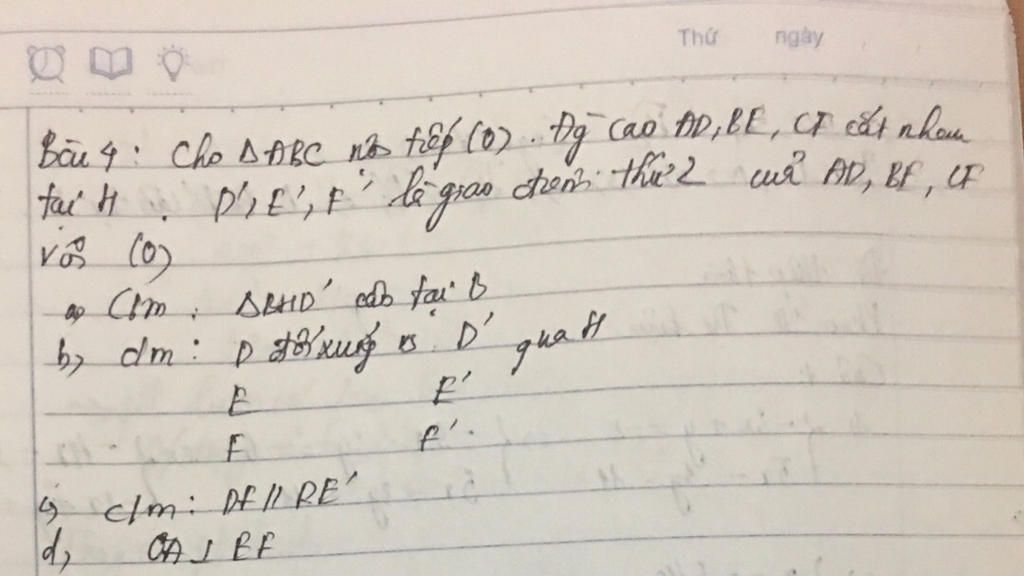 Thứ ngày
Bài 4: Cho ΔABC nội tiếp (O). Đg cao AD, BE, CF cắt nhau
tại H. D', E', F' là giao điểm thứ 2 của AD, BE, CF
với (O)
a, C/m: ΔBHD' cân tại B
b, c/m: D đối xứng vs D' qua H
E E'
F F'
c, c/m: DF // D'E'
d, OA ⊥ EF